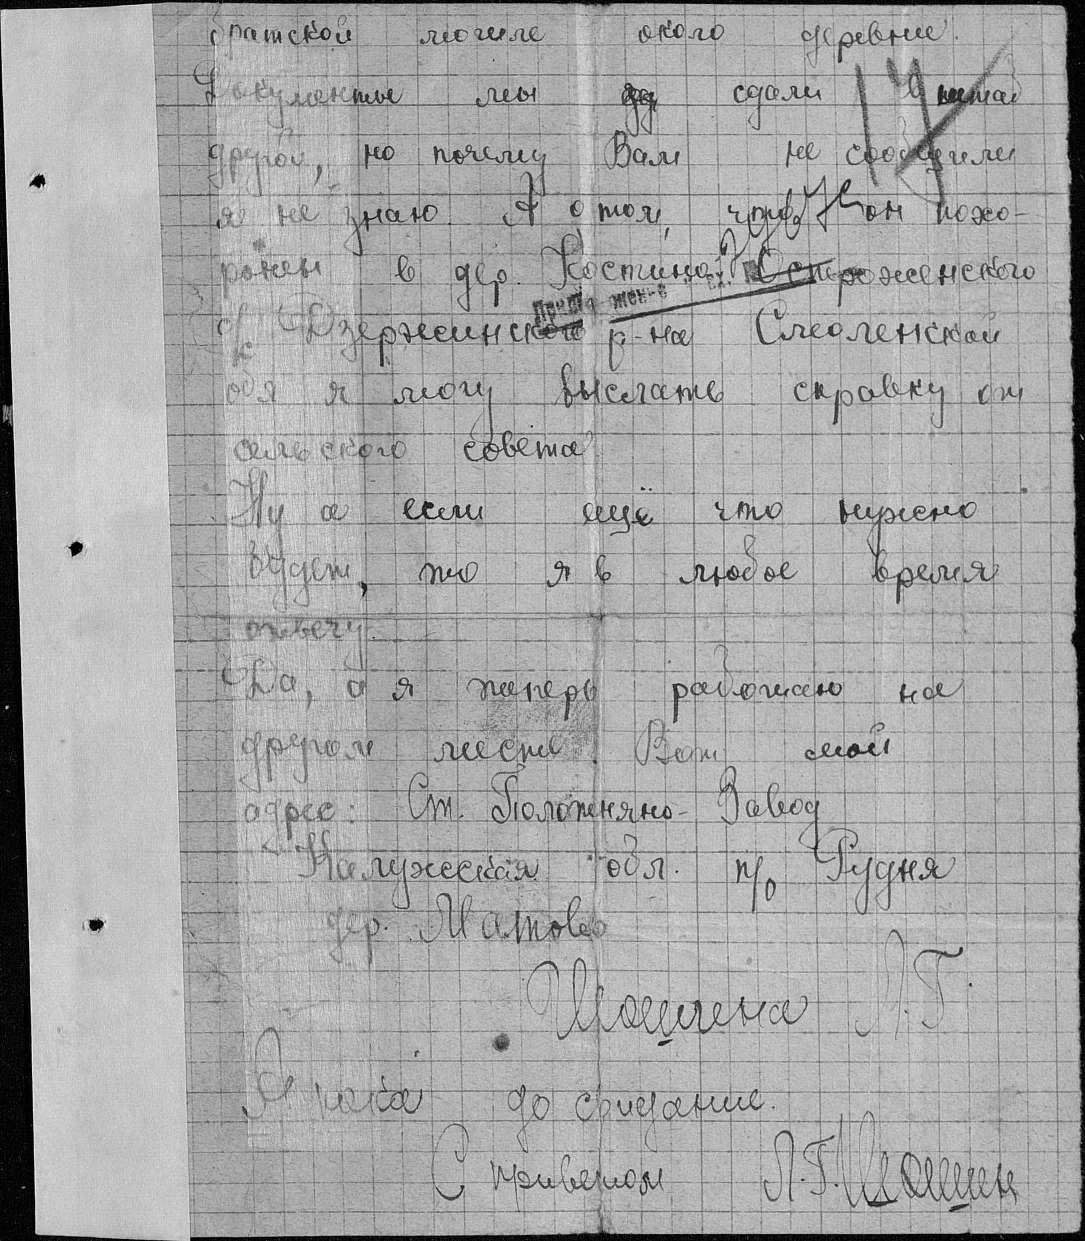 братской могиле около деревне.
Документы мы сдали
другой, но почему Вам не сообщили
я не знаю А о том, что он похо-
ронен в дер. Костино Острожженского
Дзержинского р-на Смоленской
обл я могу выслать справку от
сельского совета
Ну а если ещё что нужно
будет, то я в любое время
отвечу.
Да, а я теперь работаю на
другом месте. Вот мой
адрес: Ст. Полотняно-Завод
Калужская обл. п/о Рудня
дер. Матово
Л.Г.
А пока до свидание.
С приветом Л.Г.